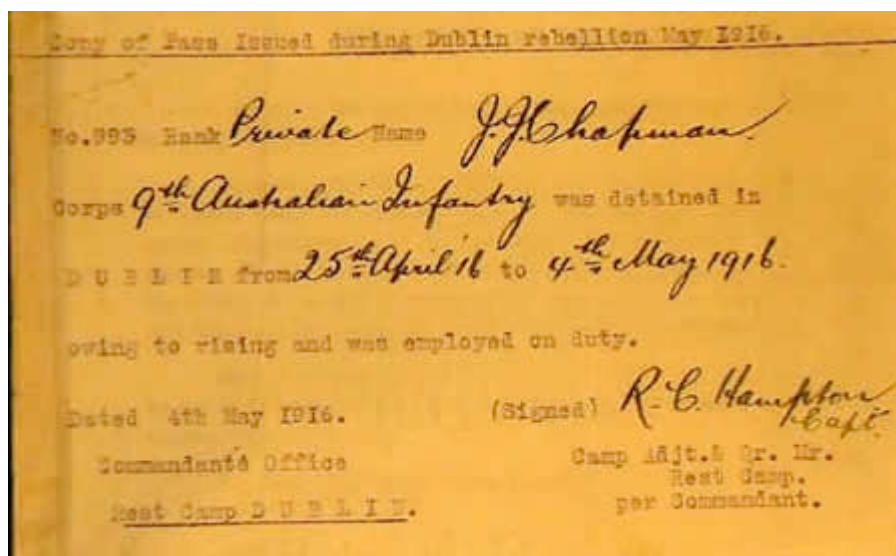 Copy of Pass Issued during Dublin rebellion May 1916.
No.993 Rank Private Name J.J. Chapman.
Corps 9th Australian Infantry was detained in
D U B L I N from 25th April '16 to 4th May 1916.
owing to rising and was employed on duty.
Dated 4th May 1916. (Signed) R. C. Hampton
Capt.
Commandant's Office Camp Adjt.& Qr. Mr.
Rest Camp.
Rest Camp D U B L I N. per Commandant.